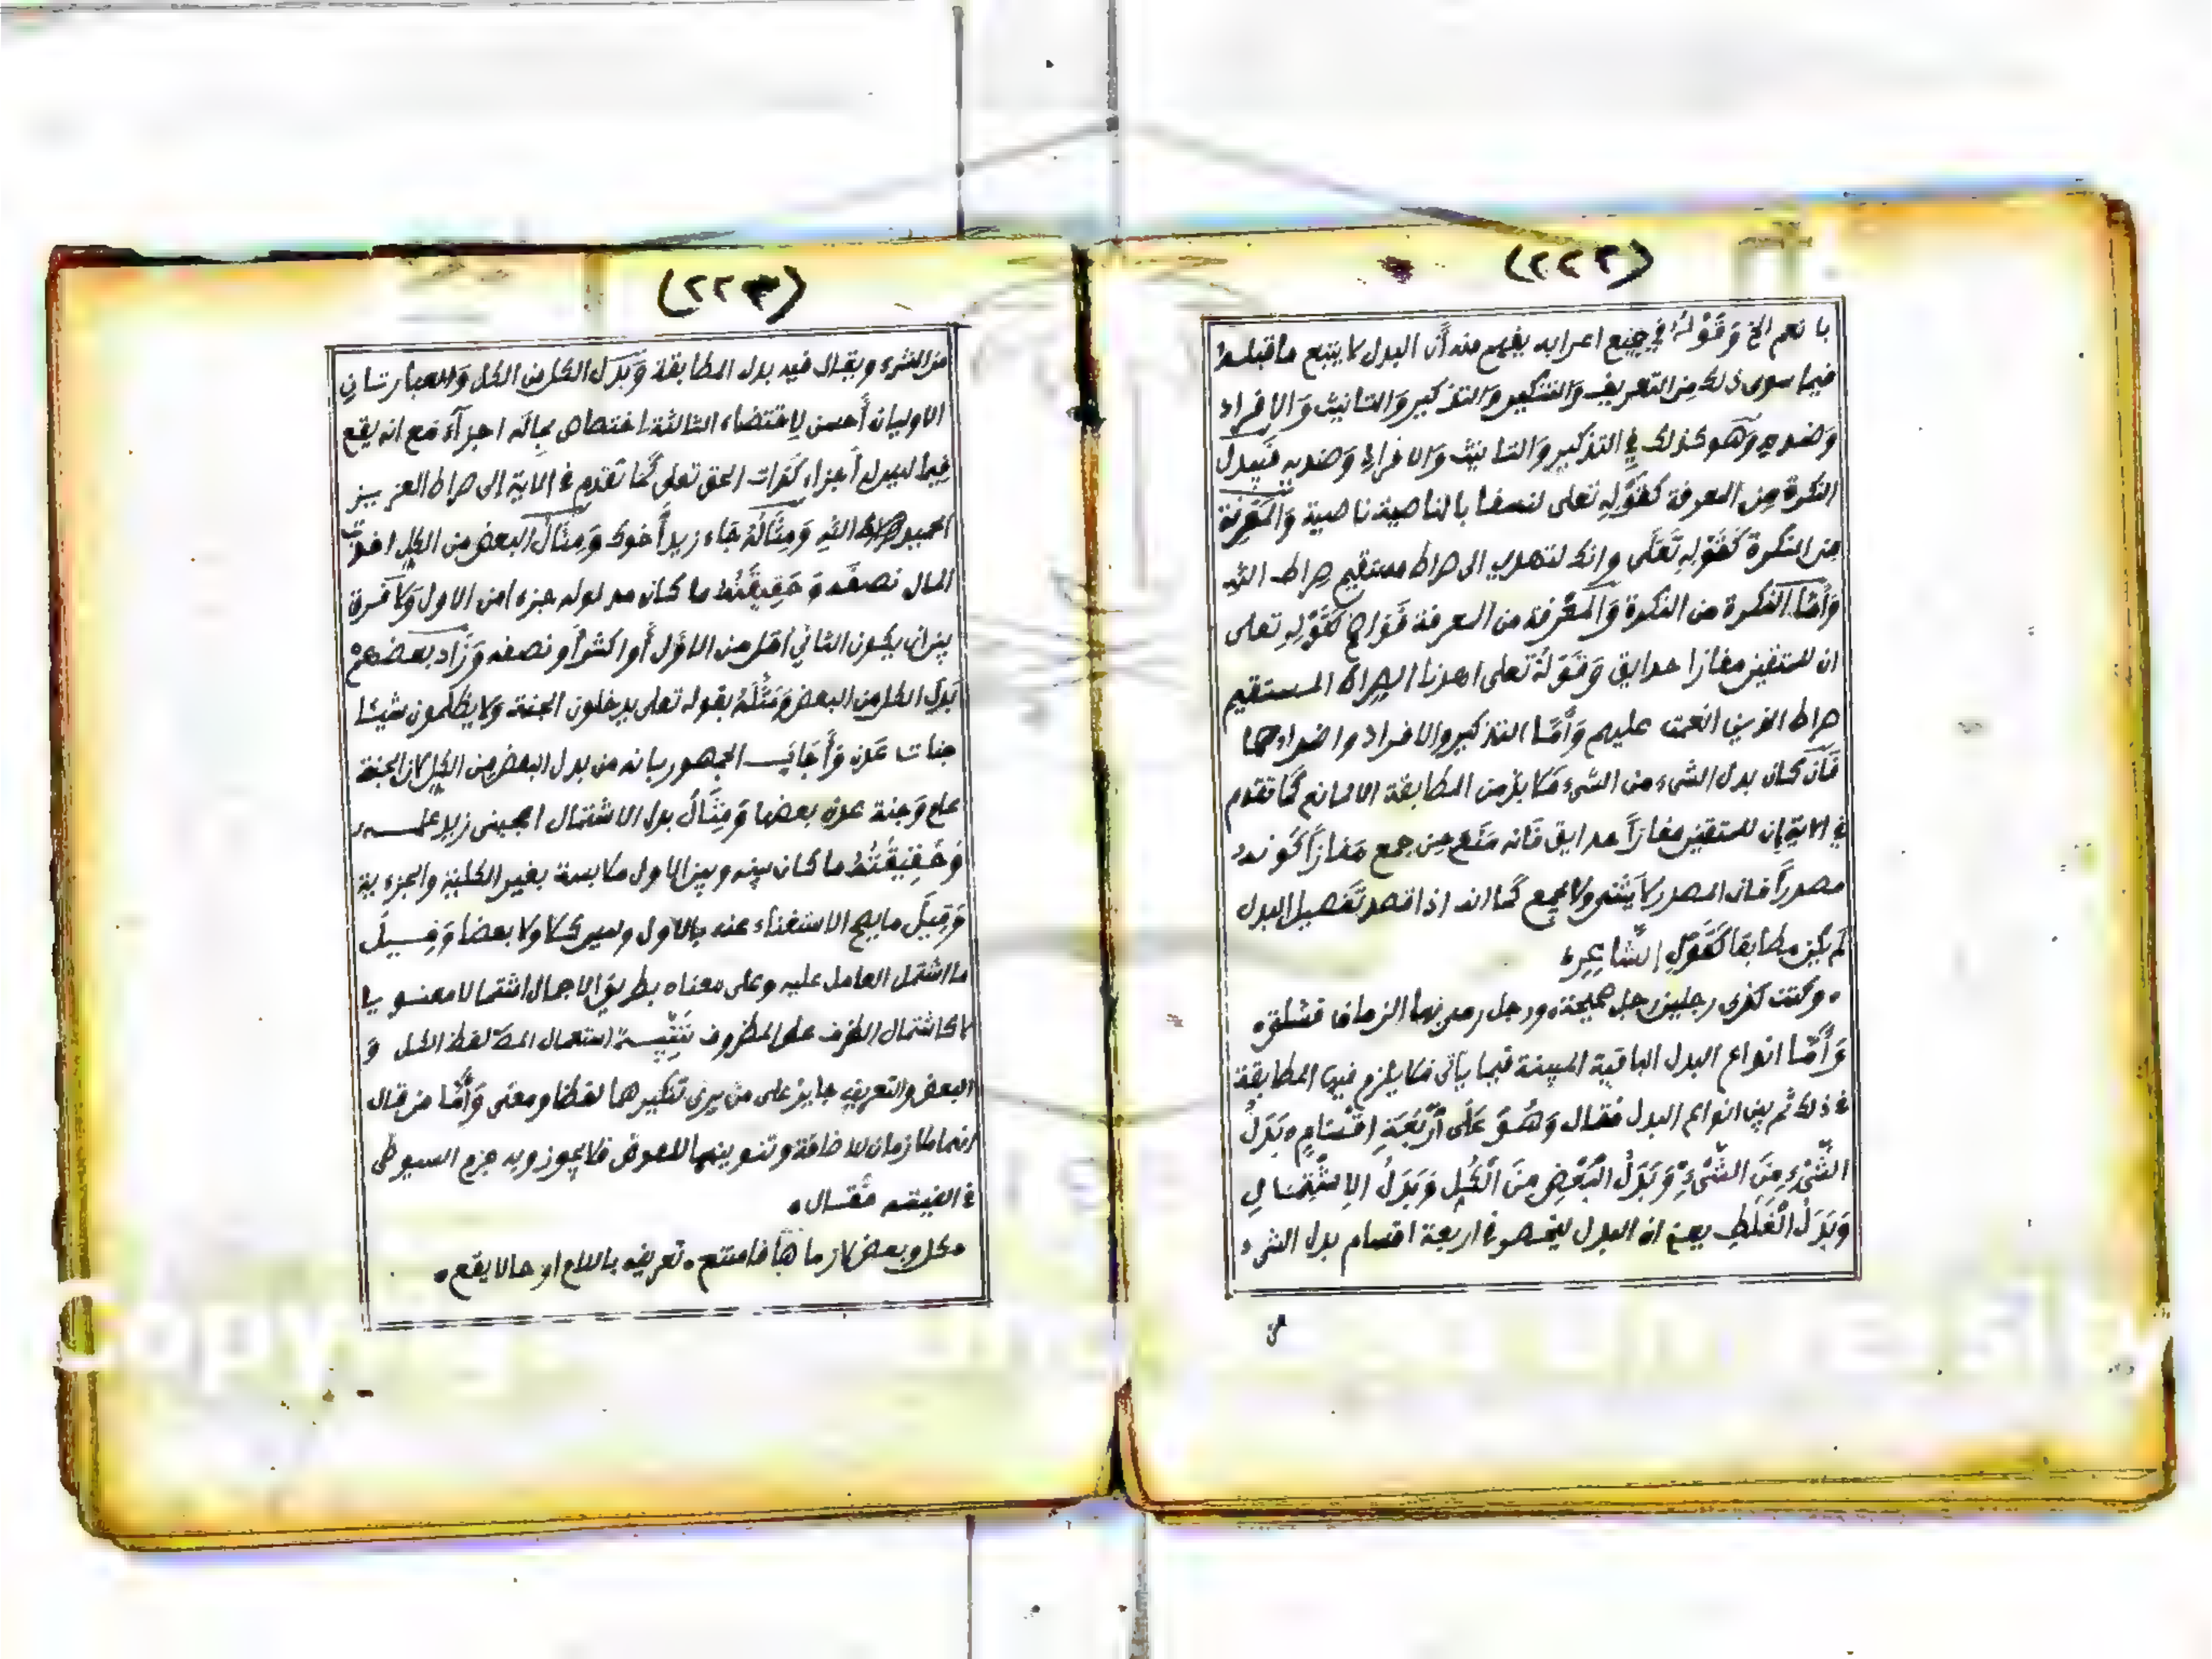 (٢٢٢)
با نعم الخ وَقَوْلُهُ في جميع اعرابه يفهم منه أن البدل لا يتبع ما قبله
فيما سوى ذلك مِن التعريف وَالتنكير وَالتذكير وَالتانيث وَالافراد
وَضديه وَهو كذلك في التذكير وَالتانيث وَالافراد وَضديه فَتبدل
النكرة مِن المعرفة كَقَوْلِهِ تعلى لنسفعا بالناصية ناصية وَالمَعْرِفة
مِن النَّكرة كَقَوْلِهِ تَعَلَى وانك لتهدى الى صراط مستقيم صِراط اللّهِ
وَأَمّا النكرة من النكرة وَالمَعْرفة من المعرفة فَوَاضح كَقَوْلِهِ تعلى
ان للمتقين مفازا حدايق وَقَوْلُهُ تعلى اهدنا الصراط المستقيم
صراط الذين انعمت عليهم وَأَمّا التذكير والافراد واضدادهما
فَان كان بدل الشىء من الشىء فَلا بد من المطابقة الا لمانع كَما تقدم
في الاية إن للمتقين مفازاً حدايق فَانه مَنَع مِن جمع مَفازاً كَونه
مصدراً فان المصدر لا يَثنى ولا يجمع كَما انه اذا قصد تَفصيل البدل
لم يكن مطابقا كَقَوْلِ الشّاعِرِ
• وكنت كذى رجلين رجل صحيحة • ورجل رمى بها الزمان فشلت •
وَأَمّا انواع البدل الباقية المبينة فيما ياتى فلا يلزم فيها المطابقة
في ذلك ثم بين انواع البدل فقال وَهُوَ عَلَى أَرْبَعَةِ اقْسَامٍ • بَدَلُ
الشَّىْءِ مِنَ الشَّىْءِ وَبَدَلُ الْبَعْضِ مِنَ الْكُلِ وَبَدَلُ الاِشْتِمَالِ
وَبَدَلُ الْغَلَطِ يعني ان البدل ينحصر في اربعة اقسام بدل الشىء
من
(٢٢٣)
من الشىء ويقال فيه بدل المطابقة وَبَدَل الكل من الكل وَالعبارتان
الاوليان أَحسن لاقتضاء الثالثة اختصاص بماله اجزآء مَع انه يقع
فيما ليس له أجزاء كَذات الحق تعلى كَما تقدم في الاية الى صراط العزيز
الحميد صراط اللّهِ وَمِثَالُهُ جَاء زيد أَخوك وَمِثَالُ البعض من الكل اخذت
المال نصفَه وَحَقِيقَتُهُ ما كان مدلوله جزءا من الاول وَلا فَرق
بين ان يكون الثاني أقل من الاوّل أَو اكثر أَو نصفه وَزَاد بعضهمْ
بَدَل الكل من البعض وَمَثّلَهُ بقوله تعلى يدخلون الجنة ولا يظلمون شيئا
جنات عدن وَأَجَابَ الجمهور بانه من بدل البعض من الكل لان الجنة
علم وَجنة عدن بعضها وَمِثَالُ بدل الاشتمال اعجبنى زيد علمه
وَحَقِيقَتُهُ ما كان بينه وبين الاول ملابسة بغير الكلية والجزءية
وَقِيلَ ما يصح الاستغناء عنه بالاول وليس كلا ولا بعضا وَقيلَ
ما اشتمل العامل عليه وعلى معناه بطريق الاجمال اشتمالا معنويا
لا كاشتمال الظرف على المظروف تَنْبِيه استعمال لفظ الكل وَ
البعض والتعريف جايز على من يرى تنكيرهما لفظا ومعنى وَأَمّا من قال
انهما ملازمان للاضافة وتنوينهما للعوض فلا يجوز وبه جزم السيوطى
في الفيته فَقال •
• كل وبعض لازماها فامتنع • تعريفه باللام او حالا يقع •